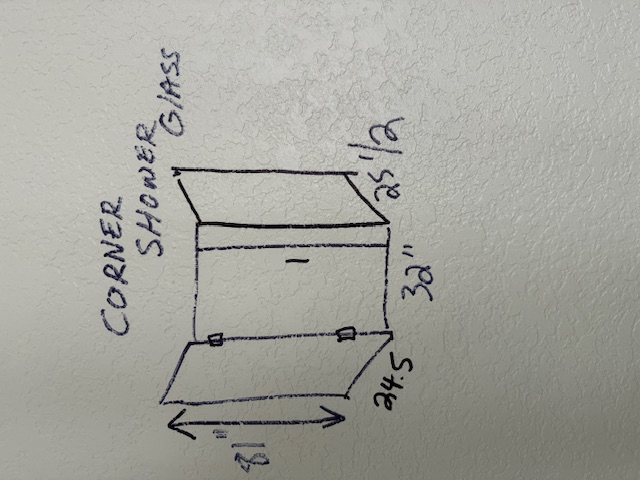 CORNER
SHOWER
GLASS
81"
24.5
32"
25 1/2